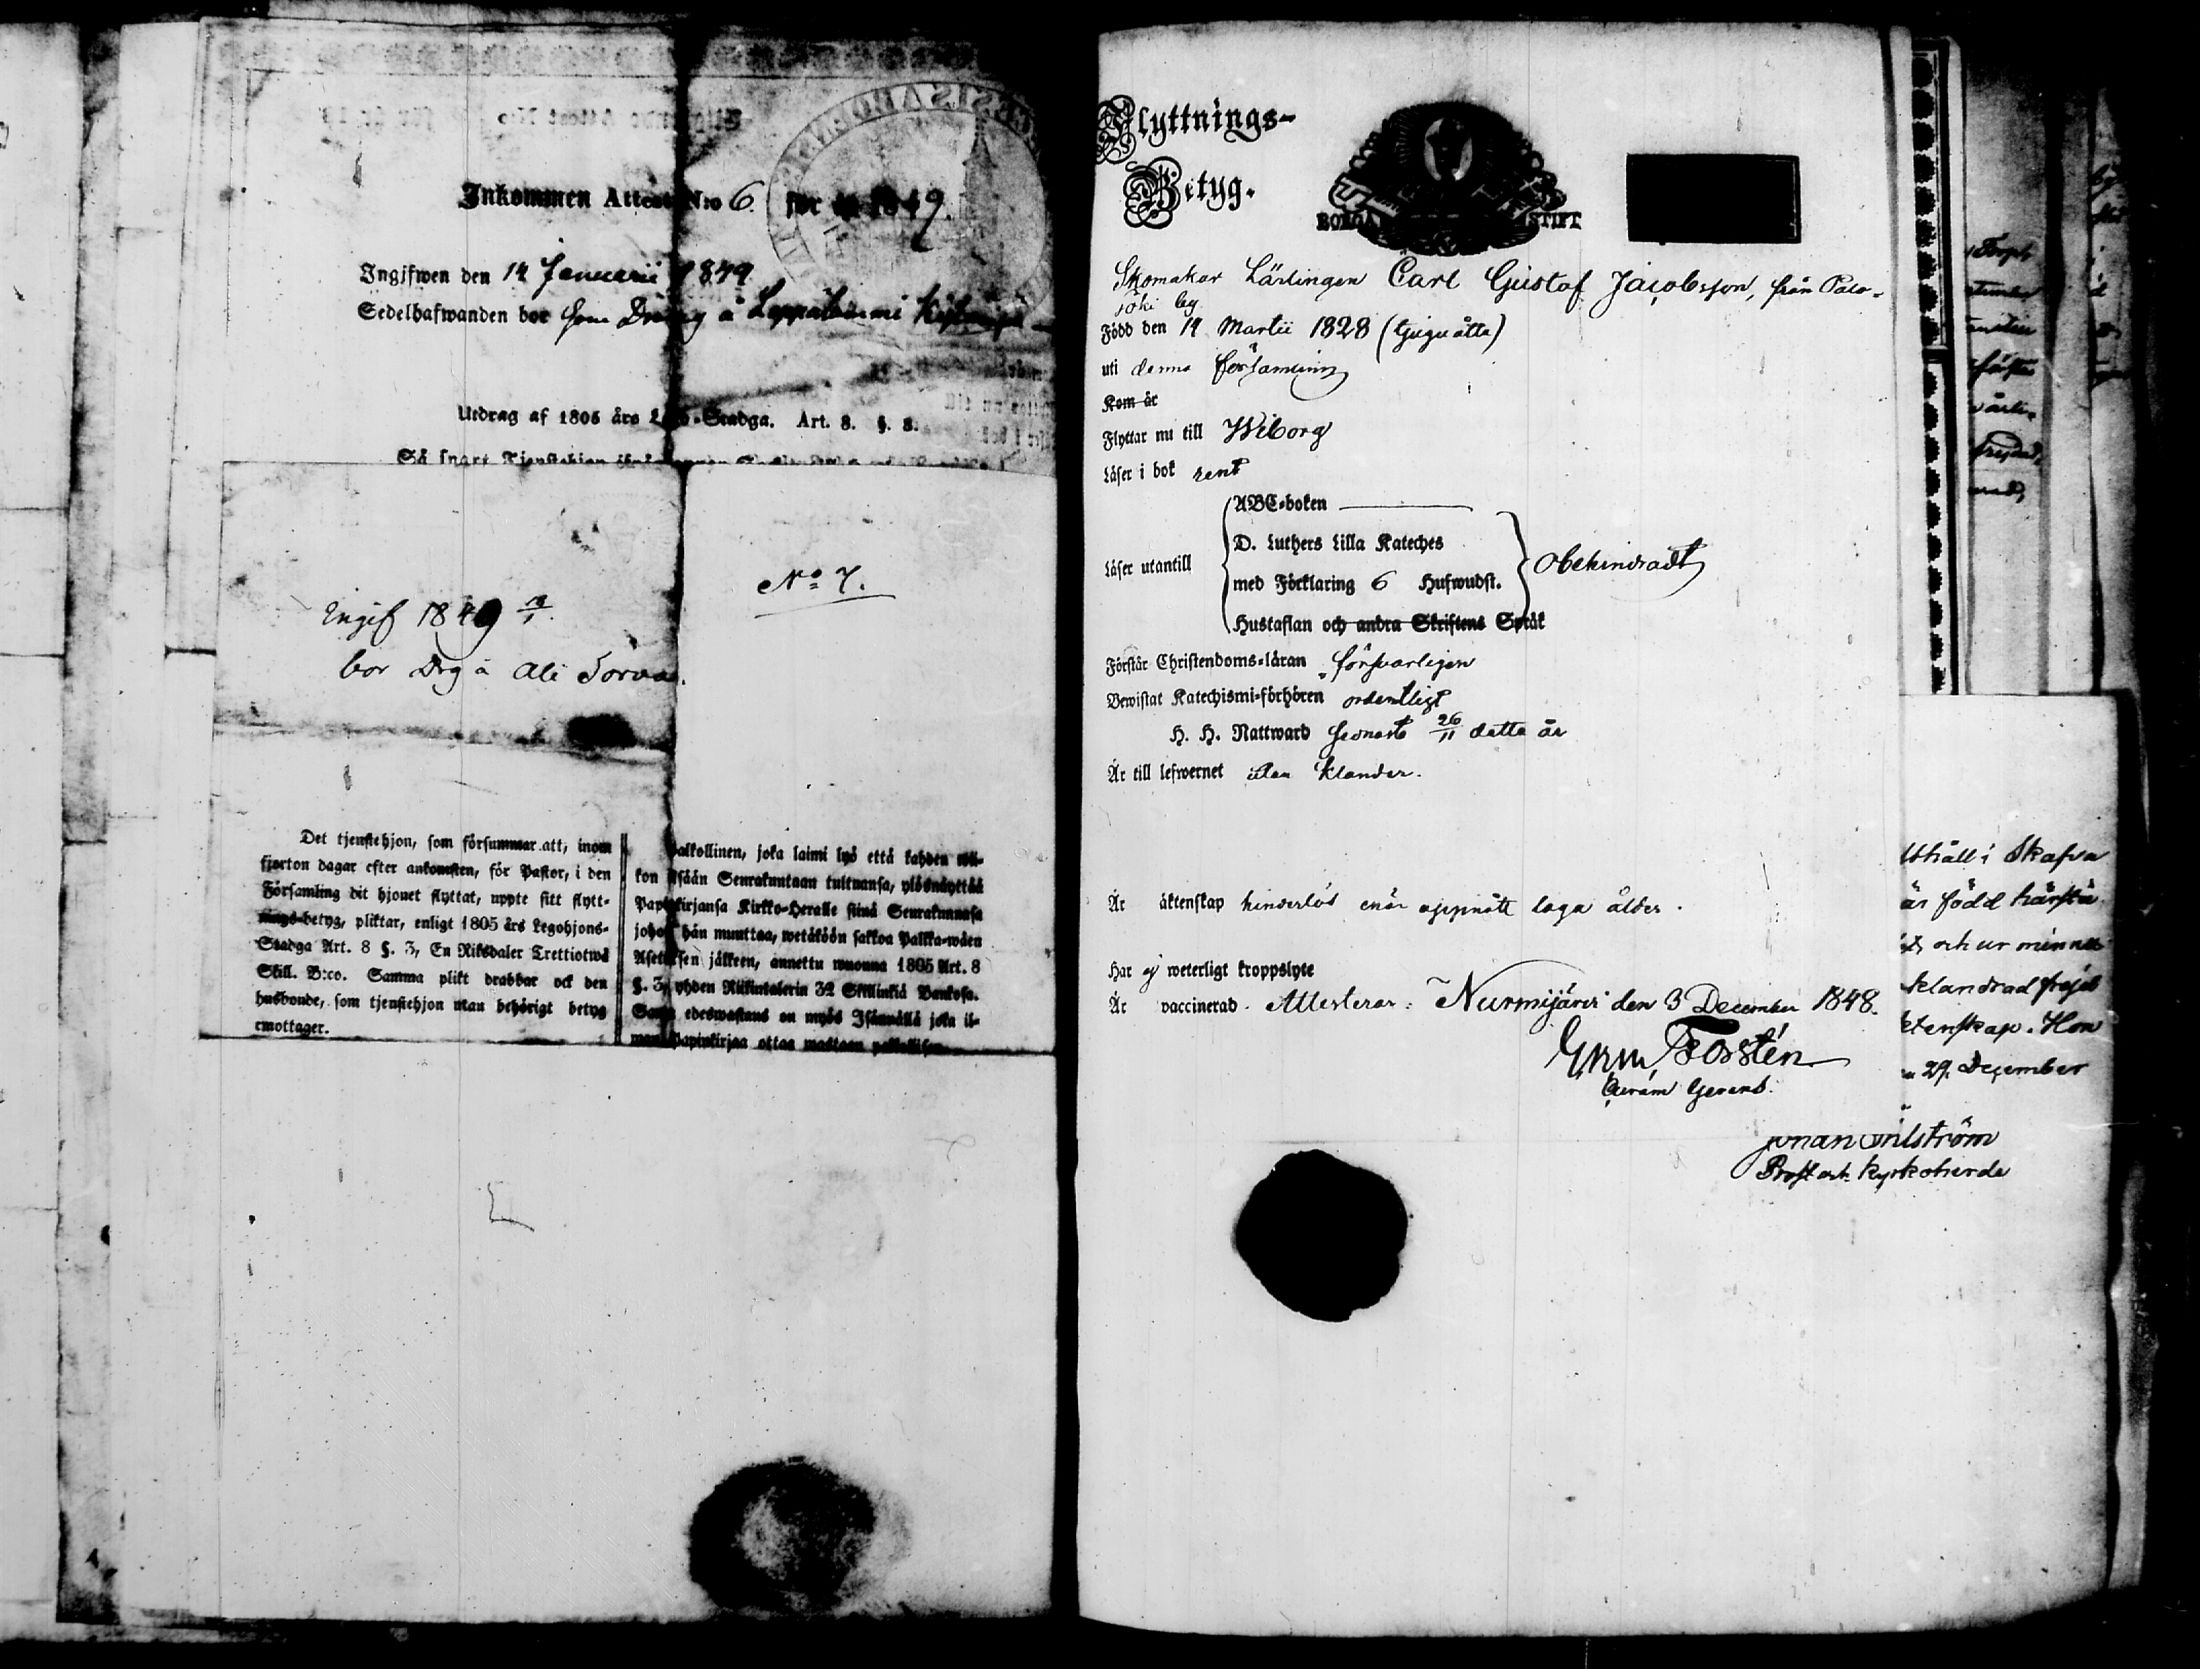 Inkommen Attest N:o 6. för år 1849.
Ingifwen den 14 Januarii 1849
Sedelhafwanden bor som Dräng å Leppälammi
Utdrag af 1805 års Lego-Stadga. Art. 8. §. 3.
Så snart Tjenstehjon
Ingif 1849 13/1.
bor Drg å Ali Torva.
No 7.
Det tjenstehjon, som försummar att, inom
fjorton dagar efter ankomsten, för Pastor, i den
Församling dit hjonet flyttat, uppte sitt flytt-
nings-betyg, pliktar, enligt 1805 års Legohjons-
Stadga Art. 8 §. 3, En Riksdaler Trettiotwå
Skill. B:co. Samma plikt drabbar ock den
husbonde, som tjenstehjon utan behörigt betyg
emottager.
Palkollinen, joka laimi lyö että kahden wii-
kon sisään Seurakuntaan tultuansa, ylösnäyttää
Papinkirjansa Kirkko-Herralle siinä Seurakunnasa
johon hän muuttaa, wetäköön sakkoa Palkka-wäen
Asetuksen jälkeen, annettu wuonna 1805 Art. 8
§. 3, yhden Riikintalerin 32 Skillinkiä Bankosa.
Sama edeswastaus on myös Isännällä joka il-
man Papinkirjaa ottaa wastaan palkollisen
Flyttnings-
Betyg.
BORGÅ STIFT
Skomakar Lärlingen Carl Gustaf Jacobsson, från Palo-
joki by
Född den 14 Martii 1828 (tjuguåtta)
uti denna församling
Kom år
Flyttar nu till Wiborg
Läser i bok rent
ABC-boken
D. Luthers Lilla Kateches
Läser utantill
med Förklaring 6 Hufwudst.
obehindradt
Hustaflan och andra Skriftens Språk
Förstår Christendoms-läran försvarligen
Bewistat Katechismi-förhören ordentligt
H. H. Nattward senast 26/11 detta år
Är till lefwernet utan klander.
Är äktenskap hinderlös enär uppnått laga ålder.
Har ej weterligt kroppslyte
Är vaccinerad. Attesterar: Nurmijärvi den 3 December 1848.
Forstén
Curam Gerens.
Torph
fräjd
håll i Skafva
är född härstä
och ur minnet
klandrad fräjd
ktenskap. Hon
29 December
Prost och Kyrkoherde